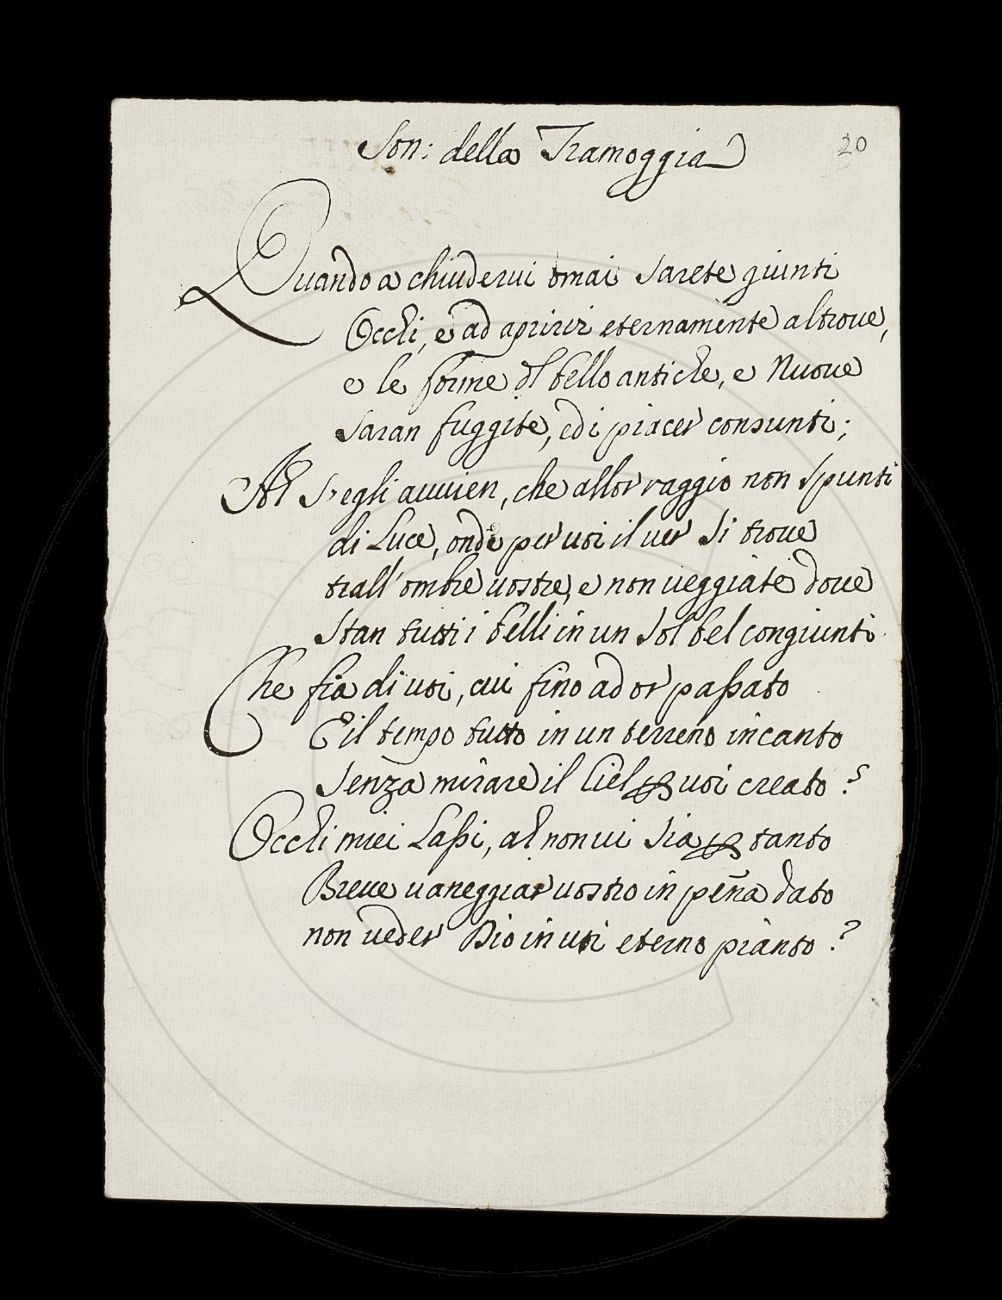 Son: della Tramoggia
20
Quando a chiudervi omai sarete giunti
Occhi, e ad aprirvi eternamente altroue,
e le forme dl bello antiche, e Nuoue
saran fuggite, ed i piacer consunti;
Ah s'egli auuien, che allor raggio non spunti
di Luce, onde per uoi il uer si troue
trall'ombre uostre, e non ueggiate doue
Stan tutti i belli in un sol bel congiunti.
Che fia di uoi, cui fino ad or passato
E il tempo tutto in un terreno incanto
Senza mirare il Ciel p uoi creato?
Occhi miei Lassi, ah non ui sia p tanto
Breue uaneggiar uostro in pena dato
non ueder Dio in uoi eterno pianto?